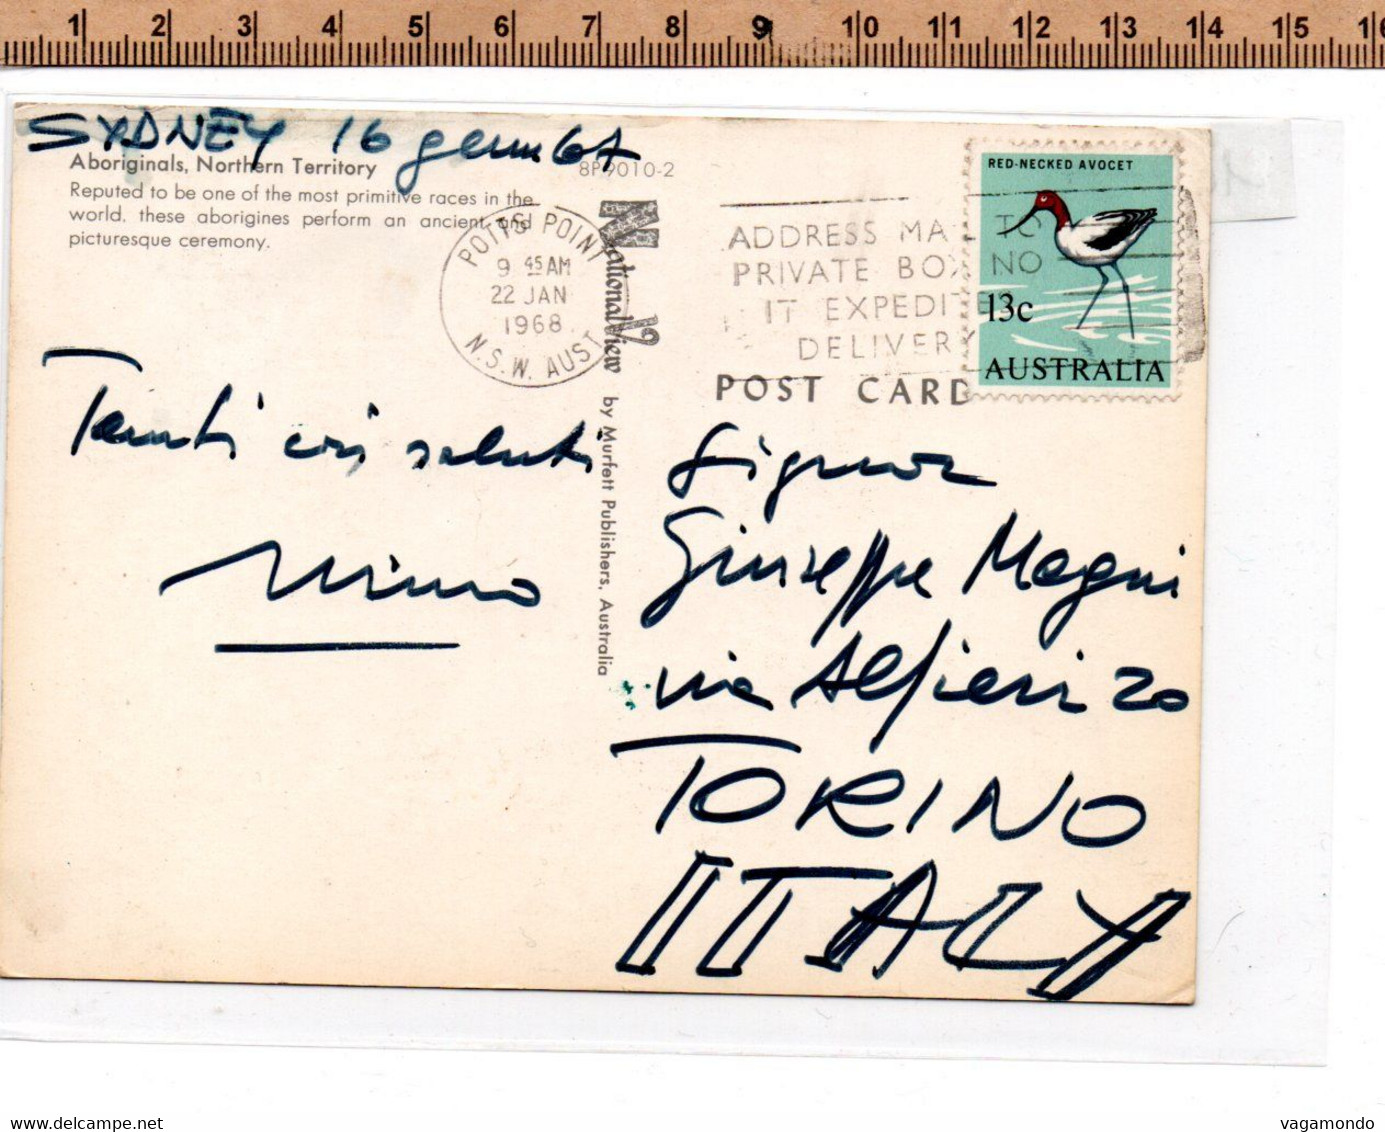 1 2 3 4 5 6 7 8 9 10 11 12 13 14 15 16
SYDNEY 16 genn 67
Aboriginals, Northern Territory
Reputed to be one of the most primitive races in the
world. these aborigines perform an ancient and
picturesque ceremony.
8P9010-2
POTTS POINT
9 45 AM
22 JAN
1968
N.S.W. AUST
National View
by Murfett Publishers, Australia
ADDRESS MAIL TO
PRIVATE BOX NO
IT EXPEDITES
DELIVERY
RED-NECKED AVOCET
13c
AUSTRALIA
POST CARD
Tanti cari saluti
Nino
Signor
Giuseppe Magni
via Alfieri 20
TORINO
ITALY
vagamondo